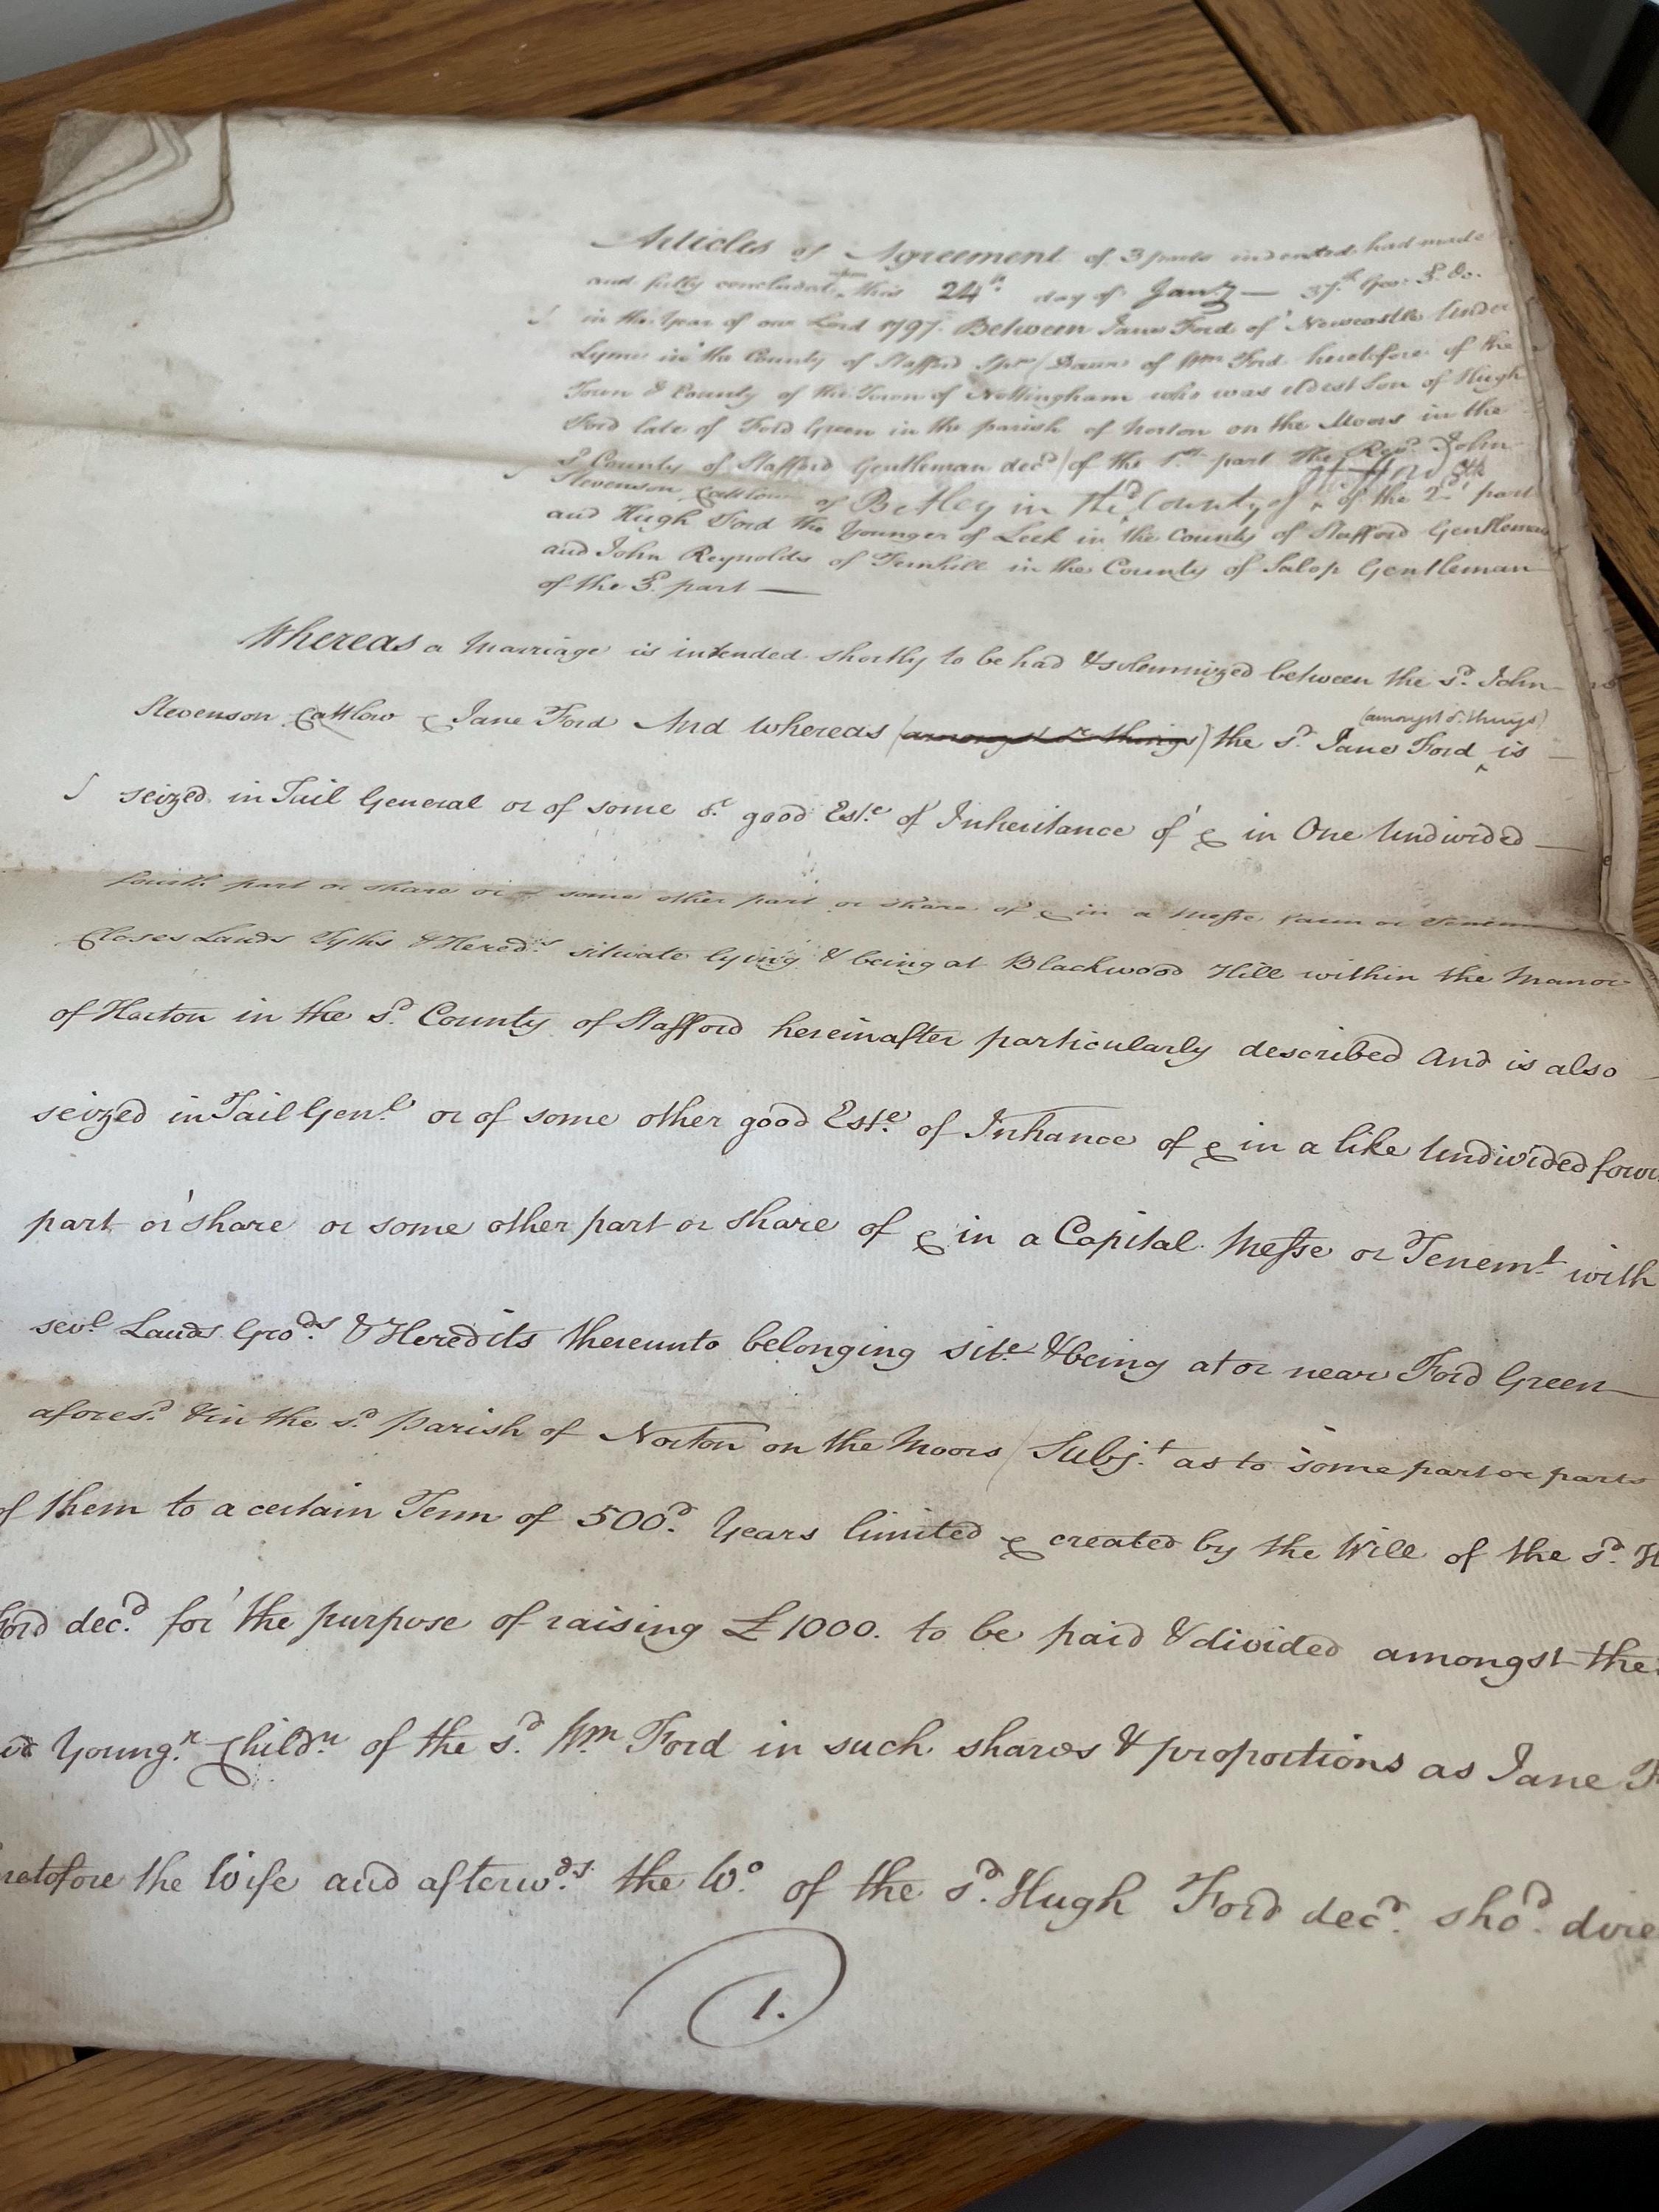 Articles of Agreement of 3 parts indented had made
and fully concluded upon this 24th. day of Jany — 37th. Geo: 3d. &c.
in the Year of our Lord 1797. Between Jane Ford of Newcastle Under
Lyme in the County of Stafford Spr (Daur of Wm Ford heretofore of the
Town & County of the Town of Nottingham who was eldest Son of Hugh
Ford late of Ford Green in the parish of Norton on the Moors in the
sd. County of Stafford Gentleman decd.) of the 1st. part The Revd. John
Stevenson Cattlow of Betley in the sd. County of Stafford of the 2d. part
and Hugh Ford the Younger of Leek in the County of Stafford Gentleman
and John Reynolds of Fernhill in the County of Salop Gentleman
of the 3d. part —
Whereas a Marriage is intended shortly to be had & solemnized between the sd. John
(amongst or. things)
Stevenson Cattlow & Jane Ford And whereas (amongst or. things) the sd. Jane Ford is —
seized in Tail General or of some or. good Este. of Inheritance of & in One Undivided —
fourth part or share or of some other part or share of & in a Messe Farm or Tenemt
Closes Lands Tyths & Heredts. situate lying & being at Blackwood Hill within the Manor
of Horton in the sd. County of Stafford hereinafter particularly described And is also
seized in Tail Genl. or of some other good Este. of Inhance of & in a like Undivided four
part or share or some other part or share of & in a Capital Messe or Tenemt. with
sevl. Lands Grods. & Heredits thereunto belonging site. & being at or near Ford Green —
aforesd. & in the sd. Parish of Norton on the Moors (Subjt. as to some part or parts
of them to a certain Term of 500d. Years limited & created by the Will of the sd. H
Ford decd. for the purpose of raising £1000. to be paid & divided amongst the
Youngr. Childrn. of the sd. Wm Ford in such shares & proportions as Jane F
retofore the Wife and afterwds. the Wo. of the sd. Hugh Ford decd. shod. dire
1.